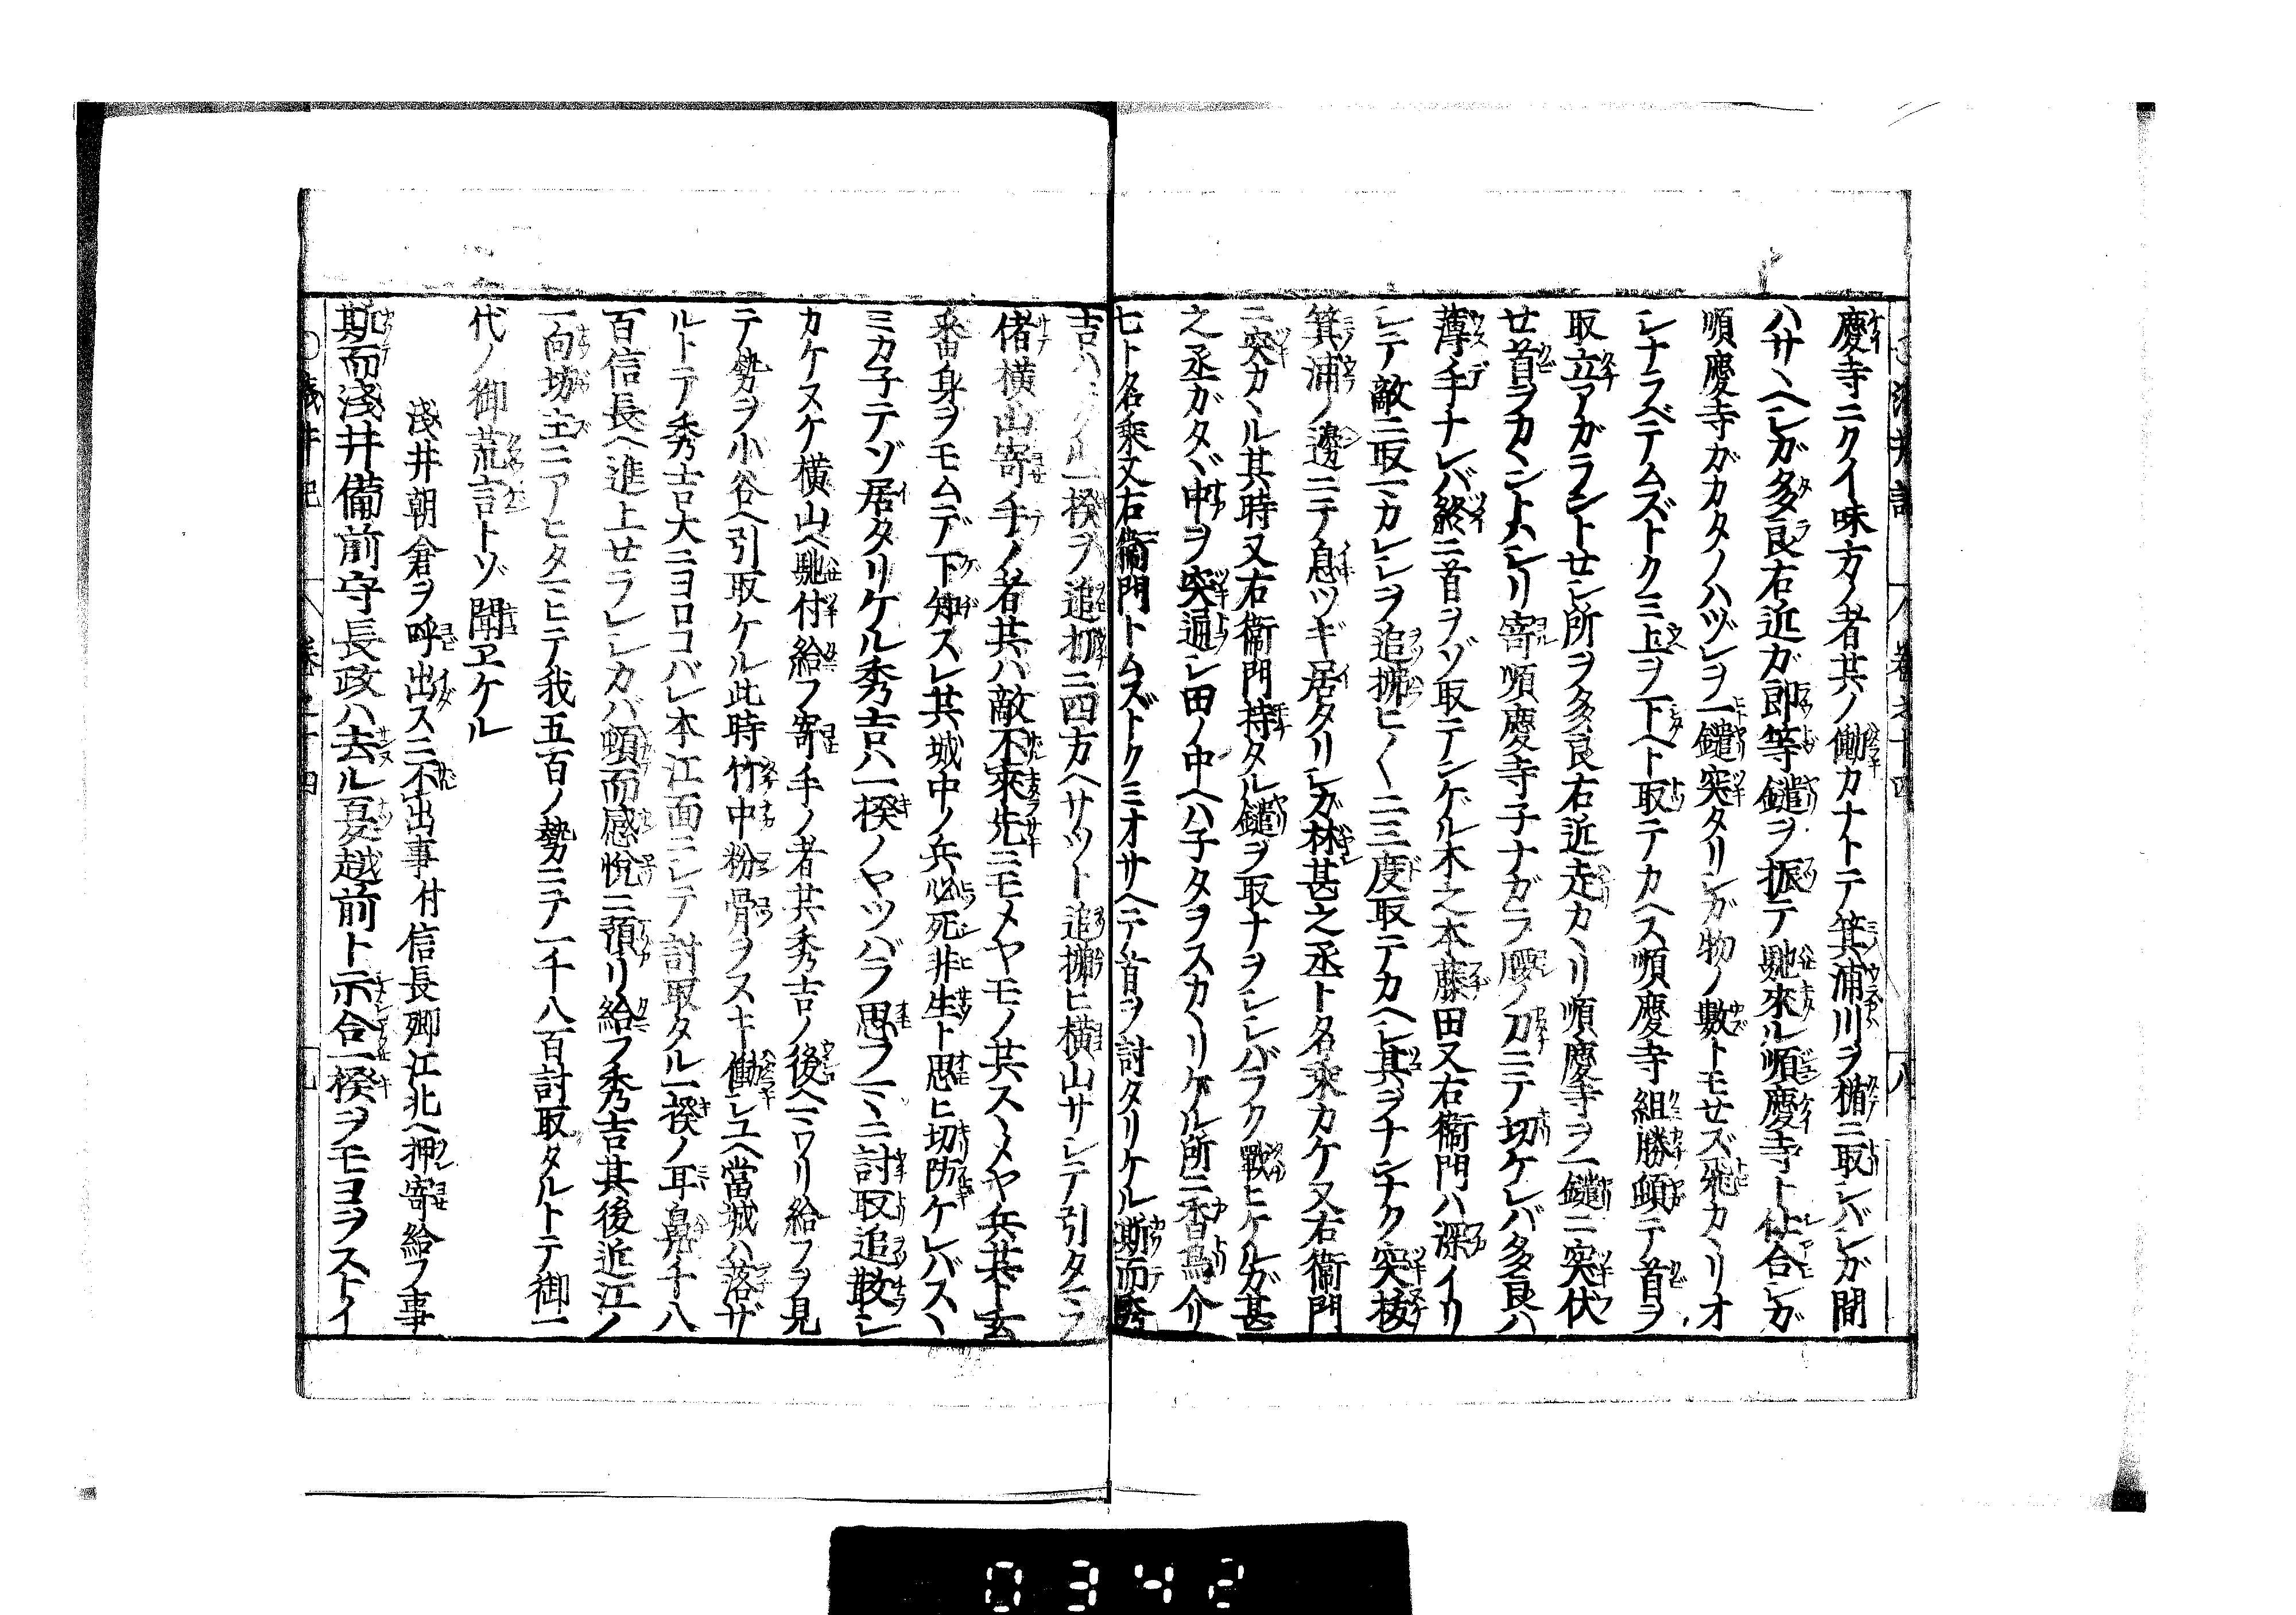 慶寺ニクイ味方ノ者共ノ働カナトテ箕浦川ヲ楯ニ取シバシガ間
ハサヽヘシガ多良右近ガ郎等鑓ヲ振テ馳來ル順慶寺ト仕合シガ
順慶寺ガカタノハヅレヲ一鑓突タリシガ物ノ數トモせズ飛カヽリオ
シナラベテムズトクミ上ヲ下ヘト取テカヘス順慶寺組勝頓テ首ヲ
取立アガラントせシ所ヲ多良右近走カヽリ順慶寺ヲ一鑓ニ突伏
せ首ヲカヽントハシリ寄順慶寺子ナガラ腰ノ刀ニテ切ケレバ多良ハ
薄手ナレバ終ニ首ヲゾ取テンゲル木之本藤田又右衞門ハ深イリ
シテ敵ニ取マカレシヲ追拂ヒ〱二三度取テカヘシ其ヲナンナク突抜
箕浦ノ邊ニテ息ツギ居タリシガ林甚之丞ト名乘カケ又右衞門
ニ突カヽル其時又右衞門持タル鑓ヲ取ナヲシシバラク戰ヒケルガ甚
之丞ガタヾ中ヲ突通シ田ノ中ヘハ子タヲスカヽリケル所ニ香鳥介
七ト名乘又右衞門トムズトクミオサヘテ首ヲ討タリケル斯而秀
吉ハ一揆ヲ追拂ニ四方ヘサツト追拂ヒ横山サシテ引タマフ
偖横山寄手ノ者共ハ敵不來先ニモメヤモノ共スヽメヤ兵共ト玄
番身ヲモムデ下知スレ共城中ノ兵必死非生ト思ヒ切防ケレバスヽ
ミカ子テゾ居タリケル秀吉ハ一揆ノヤツバラ思フマヽニ討取追散シ
カケヌケ横山ヘ馳付給フ寄手ノ者共秀吉ノ後ヘマワリ給フヲ見
テ勢ヲ小谷ヘ引取ケル此時竹中粉骨ヲヌキ働シユヘ當城ハ落ザ
ルトテ秀吉大ニヨロコバレ本江面ニシテ討取タル一揆ノ耳鼻千八
百信長ヘ進上せラレシカバ頓而感悅ニ預リ給フ秀吉其後近江ノ
一向坊主ニアヒタマヒテ我五百ノ勢ニテ一千八百討取タルトテ御一
代ノ御荒言トゾ聞ヱケル
淺井朝倉ヲ呼出スニ不出事付信長卿江北ヘ押寄給フ事
斯而淺井備前守長政ハ去ル夏越前ト示合一揆ヲモヨヲストイ